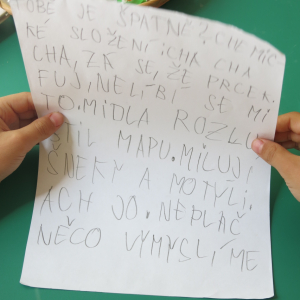 TOBĚ JE ŠPATNĚ? CHEMIC
KÉ SLOŽENÍ: CHA CHA
CHA, ZA SE, ŽE PRCEK.
FUJ, NELÍBÍ SE MI
TO. MIDLA ROZLU
ŠTIL MAPU. MILUJI
ŠNEKY A MOTYLI.
ACH JO. NEPLAČ
NĚCO VYMYSLÍME